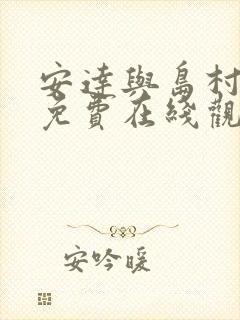 安達與島村
免費在綫觀
安吟暖